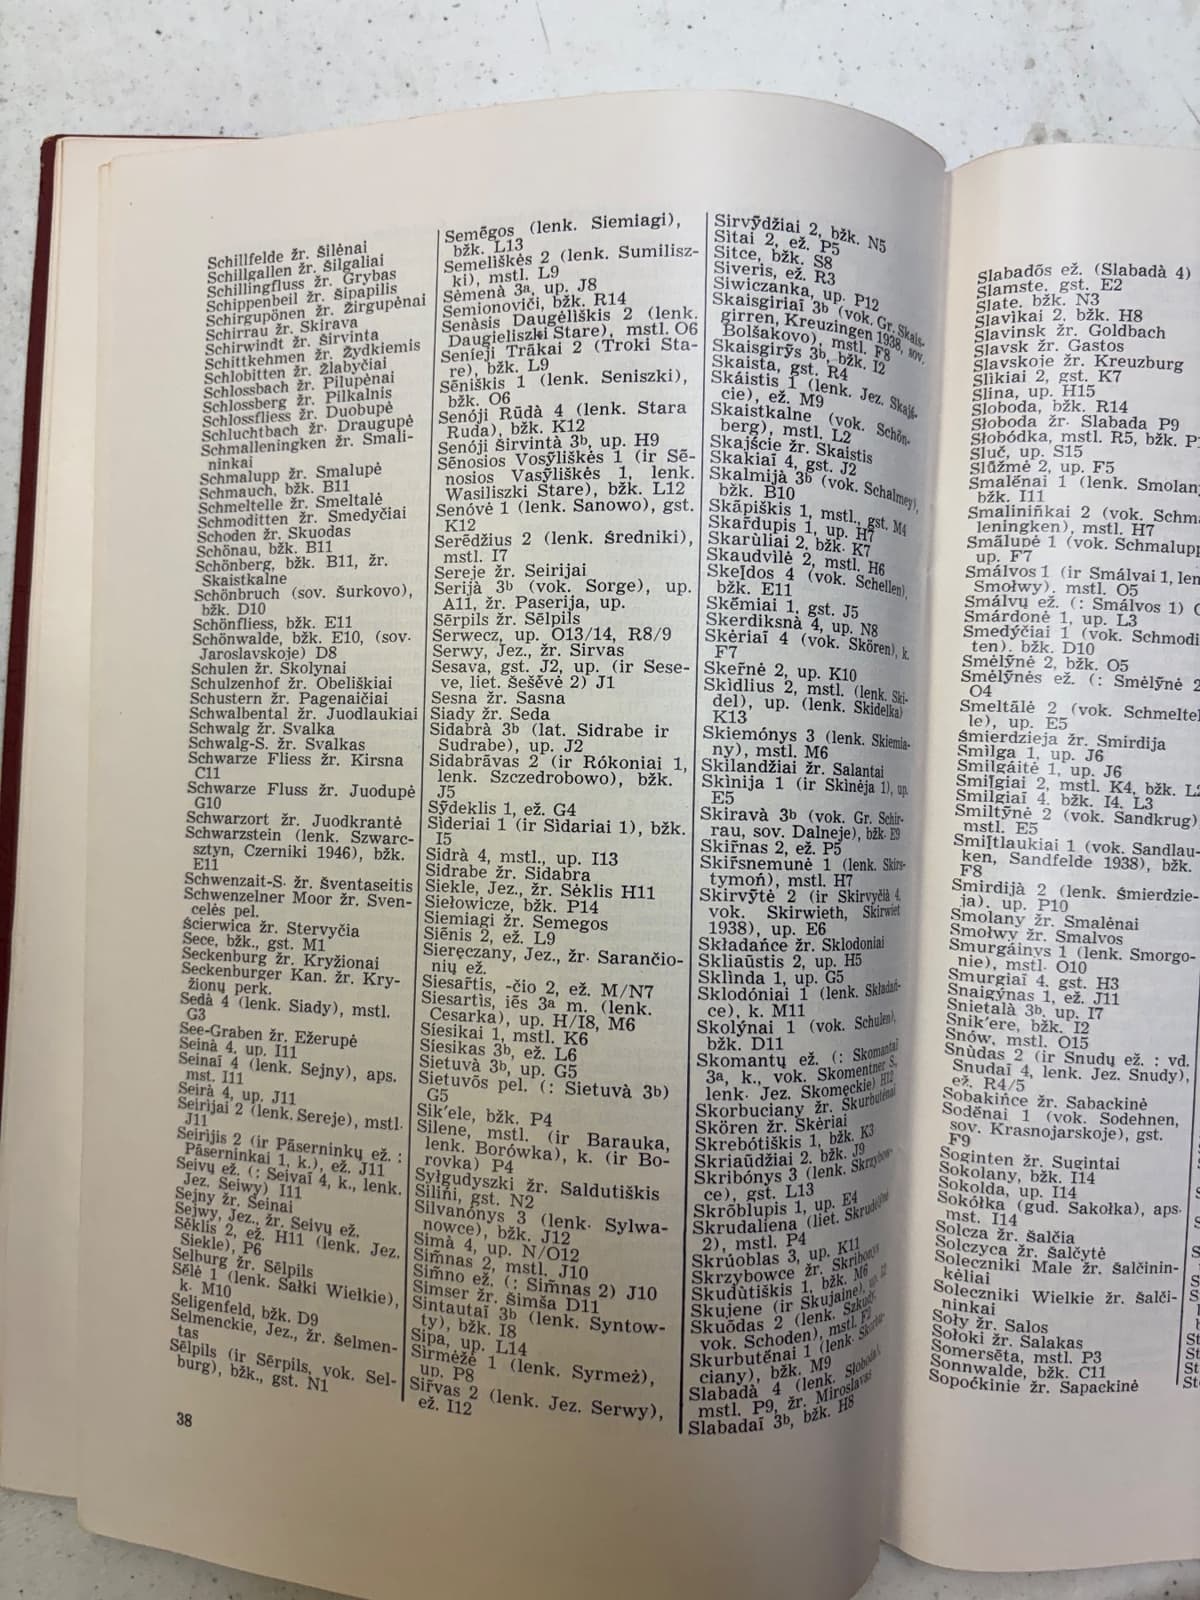 Schillfelde žr. Šilėnai
Schillgallen žr. Šilgaliai
Schillingfluss žr. Grybas
Schippenbeil žr. Šipapilis
Schirgupönen žr. Žirgupėnai
Schirrau žr. Skirava
Schirwindt žr. Širvinta
Schittkehmen žr. Žydkiemis
Schlobitten žr. Žlabyčiai
Schlossbach žr. Pilupėnai
Schlossberg žr. Pilkalnis
Schlossfliess žr. Duobupė
Schluchtbach žr. Draugupė
Schmalleningken žr. Smali-
ninkai
Schmalupp žr. Smalupė
Schmauch, bžk. B11
Schmeltelle žr. Smeltalė
Schmoditten žr. Smedyčiai
Schoden žr. Skuodas
Schönau, bžk. B11
Schönberg, bžk. B11, žr.
Skaistkalne
Schönbruch (sov. Šurkovo),
bžk. D10
Schönfliess, bžk. E11
Schönwalde, bžk. E10, (sov.
Jaroslavskoje) D8
Schulen žr. Skolynai
Schulzenhof žr. Obeliškiai
Schustern žr. Pagenaičiai
Schwalbental žr. Juodlaukiai
Schwalg žr. Svalka
Schwalg-S. žr. Svalkas
Schwarze Fliess žr. Kirsna
C11
Schwarze Fluss žr. Juodupė
G10
Schwarzort žr. Juodkrantė
Schwarzstein (lenk. Szwarc-
sztyn, Czerniki 1946), bžk.
E11
Schwenzait-S. žr. Šventaseitis
Schwenzelner Moor žr. Sven-
celės pel.
Ścierwica žr. Stervyčia
Sece, bžk., gst. M1
Seckenburg žr. Kryžionai
Seckenburger Kan. žr. Kry-
žionų perk.
Sedà 4 (lenk. Siady), mstl.
G3
See-Graben žr. Ežerupė
Seinà 4, up. I11
Seinaĩ 4 (lenk. Sejny), aps.
mst. I11
Seirà 4, up. J11
Seirijai 2 (lenk. Sereje), mstl.
J11
Seirijis 2 (ir Pãserninkų ež. :
Pãserninkai 1, k.), ež. J11
Seivų ež. (: Seivaĩ 4, k., lenk.
Jez. Seiwy) I11
Sejny žr. Seinai
Sejwy, Jez., žr. Seivų ež.
Sėklis 2, ež. H11 (lenk. Jez.
Siekle), P6
Selburg žr. Sėlpils
Sėlė 1 (lenk. Sałki Wielkie),
k. M10
Seligenfeld, bžk. D9
Selmenckie, Jez., žr. Šelmen-
tas
Sėlpils (ir Sėrpils, vok. Sel-
burg), bžk., gst. N1
38
Semẽgos (lenk. Siemiagi),
bžk. L13
Semeliškės 2 (lenk. Sumilisz-
ki), mstl. L9
Sėmenà 3ᵃ, up. J8
Semionoviči, bžk. R14
Senàsis Daugėliškis 2 (lenk.
Daugieliszki Stare), mstl. O6
Senieji Trãkai 2 (Troki Sta-
re), bžk. L9
Sẽniškis 1 (lenk. Seniszki),
bžk. O6
Senóji Rūdà 4 (lenk. Stara
Ruda), bžk. K12
Senóji Širvintà 3ᵇ, up. H9
Sẽnosios Vosỹliškės 1 (ir Sẽ-
nosios Vasỹliškės 1, lenk.
Wasiliszki Stare), bžk. L12
Senóvė 1 (lenk. Sanowo), gst.
K12
Serẽdžius 2 (lenk. Średniki),
mstl. I7
Sereje žr. Seirijai
Serijà 3ᵇ (vok. Sorge), up.
A11, žr. Paserija, up.
Sẽrpils žr. Sėlpils
Serwecz, up. O13/14, R8/9
Serwy, Jez., žr. Sirvas
Sesava, gst. J2, up. (ir Sese-
ve, liet. Šešẽvė 2) J1
Sesna žr. Sasna
Siady žr. Seda
Sidabrà 3ᵇ (lat. Sidrabe ir
Sudrabe), up. J2
Sidabrãvas 2 (ir Rókoniai 1,
lenk. Szczedrobowo), bžk.
J5
Sỹdeklis 1, ež. G4
Sìderiai 1 (ir Sìdariai 1), bžk.
I5
Sidrà 4, mstl., up. I13
Sidrabe žr. Sidabra
Siekle, Jez., žr. Sėklis H11
Siełowicze, bžk. P14
Siemiagi žr. Semegos
Siẽnis 2, ež. L9
Sieręczany, Jez., žr. Sarančio-
nių ež.
Siesar̃tis, -čio 2, ež. M/N7
Siesartìs, iẽs 3ᵃ m. (lenk.
Cesarka), up. H/I8, M6
Síesikai 1, mstl. K6
Siesikas 3ᵇ, ež. L6
Sietuvà 3ᵇ, up. G5
Sietuvõs pel. (: Sietuvà 3ᵇ)
G5
Sik'ele, bžk. P4
Silene, mstl. (ir Barauka,
lenk. Borówka), k. (ir Bo-
rovka) P4
Syłgudyszki žr. Saldutiškis
Siliñi, gst. N2
Silvanónys 3 (lenk. Sylwa-
nowce), bžk. J12
Simà 4, up. N/O12
Sim̃nas 2, mstl. J10
Sim̃no ež. (: Sim̃nas 2) J10
Simser žr. Šimša D11
Sintautaĩ 3ᵇ (lenk. Syntow-
ty), bžk. I8
Sipa, up. L14
Sirmėžė 1 (lenk. Syrmeż),
up. P8
Sir̃vas 2 (lenk. Jez. Serwy),
ež. I12
Sirvỹdžiai 2, bžk. N5
Sìtai 2, ež. P5
Sitce, bžk. S8
Siveris, ež. R3
Siwiczanka, up. P12
Skaisgiriaĩ 3ᵇ (vok. Gr. Skais-
girren, Kreuzingen 1938, sov.
Bolšakovo), mstl. F8
Skaisgirỹs 3ᵇ, bžk. I2
Skaista, gst. R4
Skáistis 1 (lenk. Jez. Skajś-
cie), ež. M9
Skaistkalne (vok. Schön-
berg), mstl. L2
Skajście žr. Skaistis
Skakiaĩ 4, gst. J2
Skalmijà 3ᵇ (vok. Schalmey),
bžk. B10
Skãpiškis 1, mstl., gst. M4
Skar̃dupis 1, up. H7
Skarùliai 2, bžk. K7
Skaudvìlė 2, mstl. H6
Skel̃dos 4 (vok. Schellen),
bžk. E11
Skẽmiai 1, gst. J5
Skerdiksnà 4, up. N8
Skėriaĩ 4 (vok. Skören), k.
F7
Sker̃nė 2, up. K10
Skìdlius 2, mstl. (lenk. Ski-
del), up. (lenk. Skidelka)
K13
Skiemónys 3 (lenk. Skiemia-
ny), mstl. M6
Skilandžiai žr. Salantai
Skìnija 1 (ir Skìnėja 1), up.
E5
Skiravà 3ᵇ (vok. Gr. Schir-
rau, sov. Dalneje), bžk. E9
Skir̃nas 2, ež. P5
Skir̃snemunė 1 (lenk. Skirs-
tymoń), mstl. H7
Skirvỹtė 2 (ir Skirvyčià 4,
vok. Skirwieth, Skirwiet
1938), up. E6
Składańce žr. Sklodoniai
Skliaũstis 2, up. H5
Sklìnda 1, up. G5
Sklodóniai 1 (lenk. Składań-
ce), k. M11
Skolýnai 1 (vok. Schulen),
bžk. D11
Skomantų ež. (: Skomantai
3ᵃ, k., vok. Skomentner S.,
lenk. Jez. Skomęckie) H12
Skorbuciany žr. Skurbutėnai
Skören žr. Skėriai
Skrebótiškis 1, bžk. K3
Skriaũdžiai 2. bžk. J9
Skribónys 3 (lenk. Skrzybow-
ce), gst. L13
Skrõblupis 1, up. E4
Skrudaliena (liet. Skrudėlynė
2), mstl. P4
Skrúoblas 3, up. K11
Skrzybowce žr. Skribonys
Skudùtiškis 1, bžk. M6
Skujene (ir Skujaine), up. I2
Skuõdas 2 (lenk. Szkudy,
vok. Schoden), mstl. F2
Skurbutẽnai 1 (lenk. Skorbu-
ciany), bžk. M9
Slabadà 4 (lenk. Słoboda),
mstl. P9, žr. Miroslavas
Slabadaĩ 3ᵇ, bžk. H8
Slabadõs ež. (Slabadà 4)
Slamste, gst. E2
Slate, bžk. N3
Slavìkai 2, bžk. H8
Slavinsk žr. Goldbach
Slavsk žr. Gastos
Slavskoje žr. Kreuzburg
Slìkiai 2, gst. K7
Slina, up. H15
Sloboda, bžk. R14
Słoboda žr. Slabada P9
Słobódka, mstl. R5, bžk.
Sluč, up. S15
Slũžmė 2, up. F5
Smalẽnai 1 (lenk. Smolan
bžk. I11
Smaliniñkai 2 (vok. Schma
leningken), mstl. H7
Smãlupė 1 (vok. Schmalupp
up. F7
Smálvos 1 (ir Smálvai 1, len
Smołwy), mstl. O5
Smálvų ež. (: Smálvos 1)
Smárdonė 1, up. L3
Smedýčiai 1 (vok. Schmodi
ten). bžk. D10
Smėlỹnė 2, bžk. O5
Smėlỹnės ež. (: Smėlỹnė 2
O4
Smeltãlė 2 (vok. Schmeltel
le), up. E5
Śmierdzieja žr. Smirdija
Smilga 1, up. J6
Smilgáitė 1, up. J6
Smil̃giai 2, mstl. K4, bžk.
Smilgiaĩ 4. bžk. I4. L3
Smiltỹnė 2 (vok. Sandkrug)
mstl. E5
Smil̃tlaukiai 1 (vok. Sandlau-
ken, Sandfelde 1938), bžk.
F8
Smirdijà 2 (lenk. Śmierdzie-
ja). up. P10
Smolany žr. Smalėnai
Smołwy žr. Smalvos
Smurgáinys 1 (lenk. Smorgo-
nie), mstl. O10
Smurgiaĩ 4, gst. H3
Snaigýnas 1, ež. J11
Snietalà 3ᵇ, up. I7
Snik'ere, bžk. I2
Snów, mstl. O15
Snùdas 2 (ir Snudų ež. : vd.
Snudaĩ 4, lenk. Jez. Snudy),
ež. R4/5
Sobakińce žr. Sabackinė
Sodẽnai 1 (vok. Sodehnen,
sov. Krasnojarskoje), gst.
F9
Soginten žr. Sugintai
Sokolany, bžk. I14
Sokolda, up. I14
Sokółka (gud. Sakołka), aps.
mst. I14
Solcza žr. Šalčia
Solczyca žr. Šalčytė
Soleczniki Male žr. Šalčinin-
kėliai
Soleczniki Wielkie žr. Šalči-
ninkai
Soły žr. Salos
Sołoki žr. Salakas
Somersėta, mstl. P3
Sonnwalde, bžk. C11
Sopoćkinie žr. Sapackinė